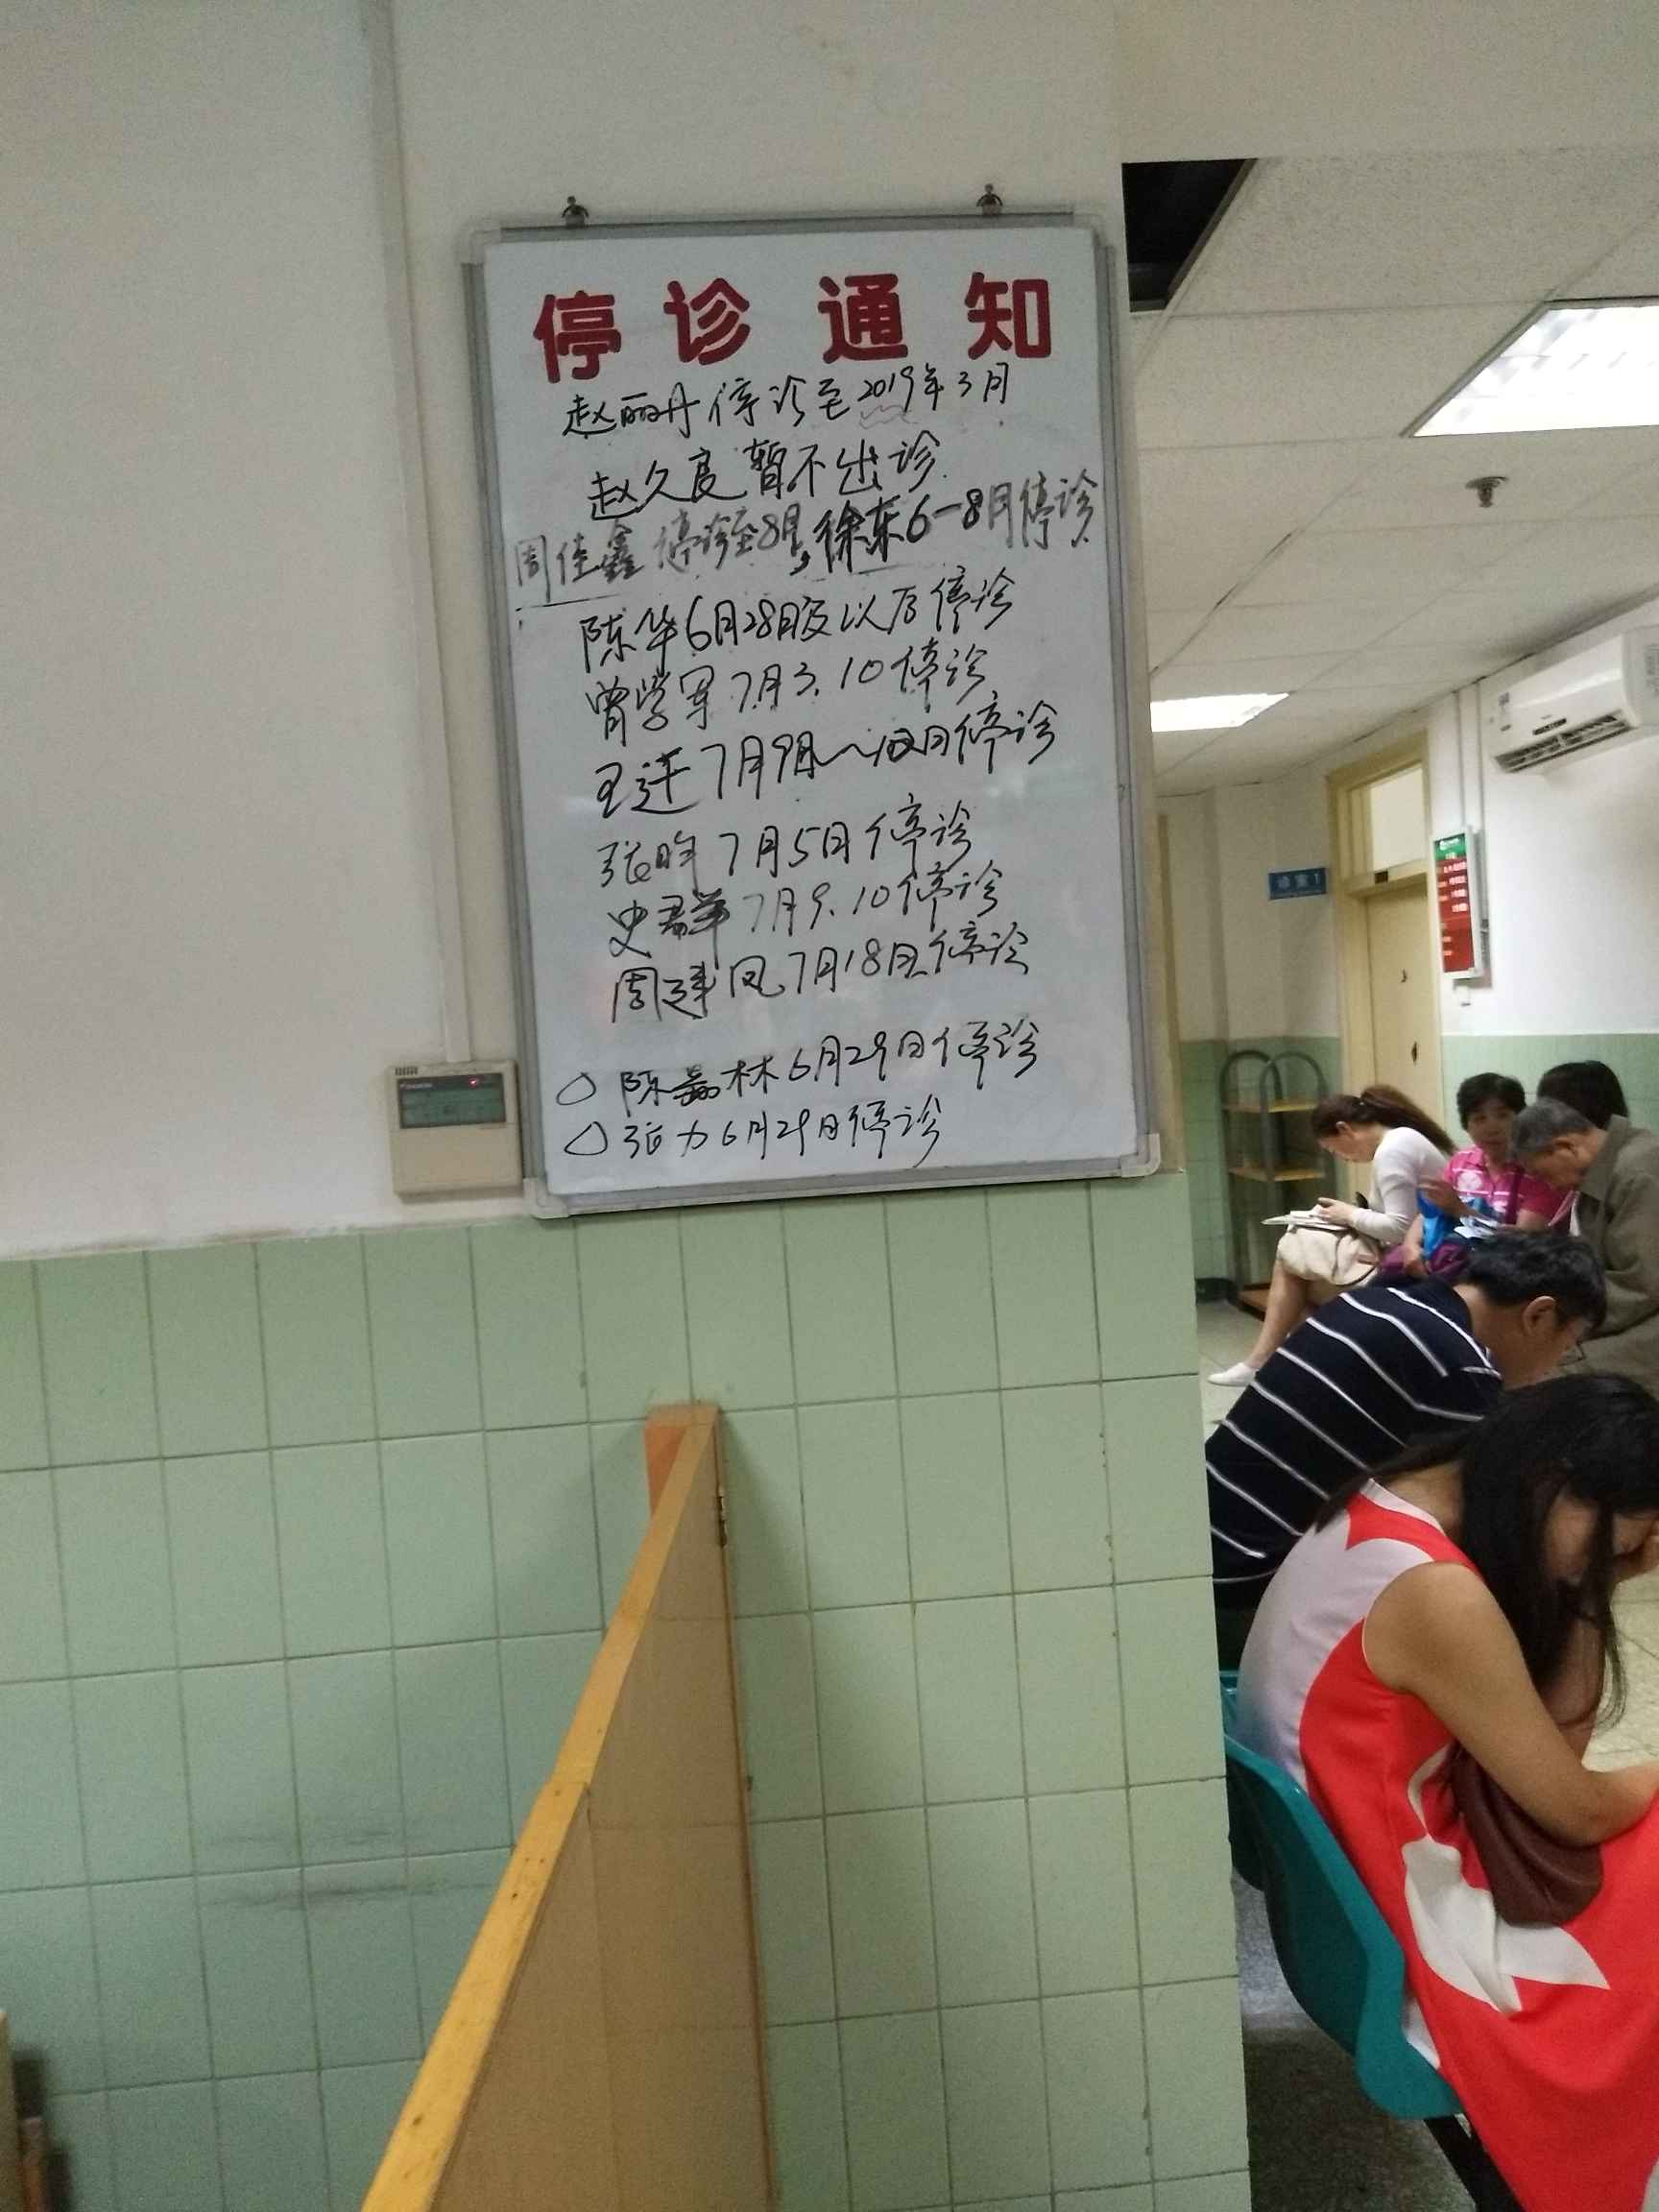 停诊通知
赵丽丹停诊至2019年3月
赵久良暂不出诊
周佳鑫停诊至8月,徐东6-8月停诊
陈华6月28日及以后停诊
曾学军7月3、10停诊
王迁7月9日~12日停诊
张昀7月5日停诊
史君 7月9、10停诊
周建凤7月18日停诊
陈嘉林6月29日停诊
张力6月29日停诊
诊室1